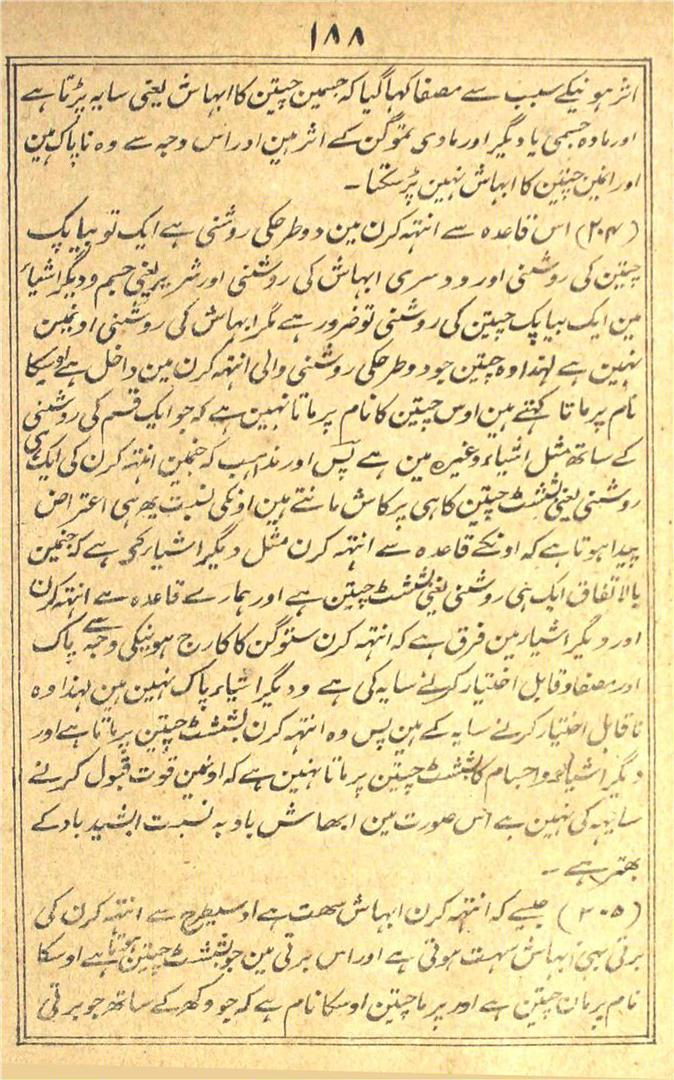 ۱۸۸
اثر ہونیکے سبب سے مصفا کہا گیا کہ جسمین چیتن کا ابہاش یعنی سایہ پڑتا ہے
اور مادہ جسمی یا دیگر اور مادی تموگن کے اثر ہین اور اس وجہ سے وہ ناپاک ہین
اور انمین چیتن کا ابہاش نہین پڑ سکتا ۔
(۲۰۴) اس قاعدہ سے انتہہ کرن مین دو طرحکی روشنی ہے ایک تو بیاپک
چیتن کی روشنی اور دوسری ابہاش کی روشنی اور شریر یعنی جسم و دیگر اشیاء
مین ایک بیاپک چیتن کی روشنی تو ضرور ہے مگر ابہاش کی روشنی اونمین
نہین ہے لہذا وہ چیتن جو دو طرحکی روشنی والی انتہہ کرن مین داخل ہے اوسکا
نام پرماتا کہتے ہین اوس چیتن کا نام پرماتا نہین ہے کہ جو ایک قسم کی روشنی
کے ساتھ مثل اشیاء وغیرہ مین ہے پس اور مذاہب کہ جنمین انتہہ کرن کی ایک ہی
روشنی یعنی بششٹ چیتن کا ہی پرکاش مانتے ہین اونکی نسبت یھ ہی اعتراض
پیدا ہوتا ہے کہ اونکے قاعدہ سے انتہہ کرن مثل دیگر اشیاء کے ہے کہ جنمین
بالاتفاق ایک ہی روشنی یعنی بششٹ چیتن ہے اور ہمارے قاعدہ سے انتہہ کرن
اور دیگر اشیار مین فرق ہے کہ انتہہ کرن ستوگن کا کارج ہونیکی وجہ سے پاک
اور مصفا و قابل اختیار کرنے سایہ کی ہے و دیگر اشیاء پاک نہین ہین لہذا وہ
ناقابل اختیار کرنے سایہ کے ہین پس وہ انتہہ کرن بششٹ چیتن پرماتا ہے اور
دیگر اشیاء و اجسام کا بششٹ چیتن پرماتا نہین ہے کہ اونمین قوت قبول کرنے
سایہہ کی نہین ہے اس صورت مین ابھاش باد بہ نسبت ابشید باد کے
بھتر ہے ۔
(۲۰۵) جیسے کہ انتہہ کرن ابہاش سھت ہے اوسیطرح سے انتہہ کرن کی
برتی بہی ابہاش سہت ہوتی ہے اور اس برتی مین جو بششٹ چیتن ہوتا ہے اوسکا
نام پرمان چیتن ہے اور پرما چیتن اوسکا نام ہے کہ جو وکھر کے ساتھ جو برتی